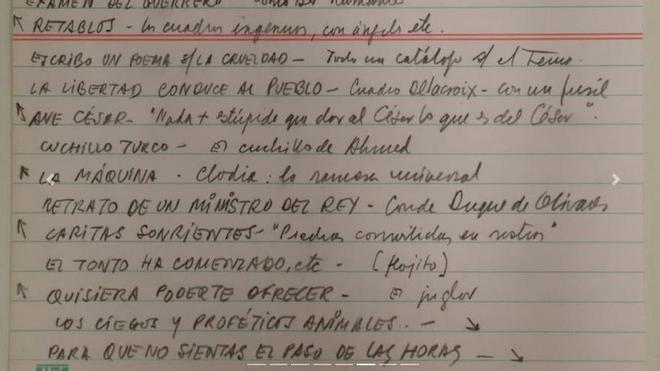 EXAMEN DEL GUERRERO
RETABLOS - los cuadros ingenuos, con ángeles etc.
ESCRIBO UN POEMA S/LA CRUELDAD - Todo un catálogo s/ el tema.
LA LIBERTAD CONDUCE AL PUEBLO - Cuadro Delacroix - con un fusil
AVE CÉSAR - "Nada + estúpido que dar al César lo que es del César".
CUCHILLO TURCO - El cuchillo de Ahmed
LA MÁQUINA - Clodia: la ramera universal
RETRATO DE UN MINISTRO DEL REY - Conde Duque de Olivares
CARITAS SONRIENTES - "Piedras convertidas en rostros"
EL TONTO HA COMENZADO, etc - [flojito]
QUISIERA PODERTE OFRECER - El juglar
LOS CIEGOS Y PROFÉTICOS ANIMALES. -
PARA QUE NO SIENTAS EL PASO DE LAS HORAS -